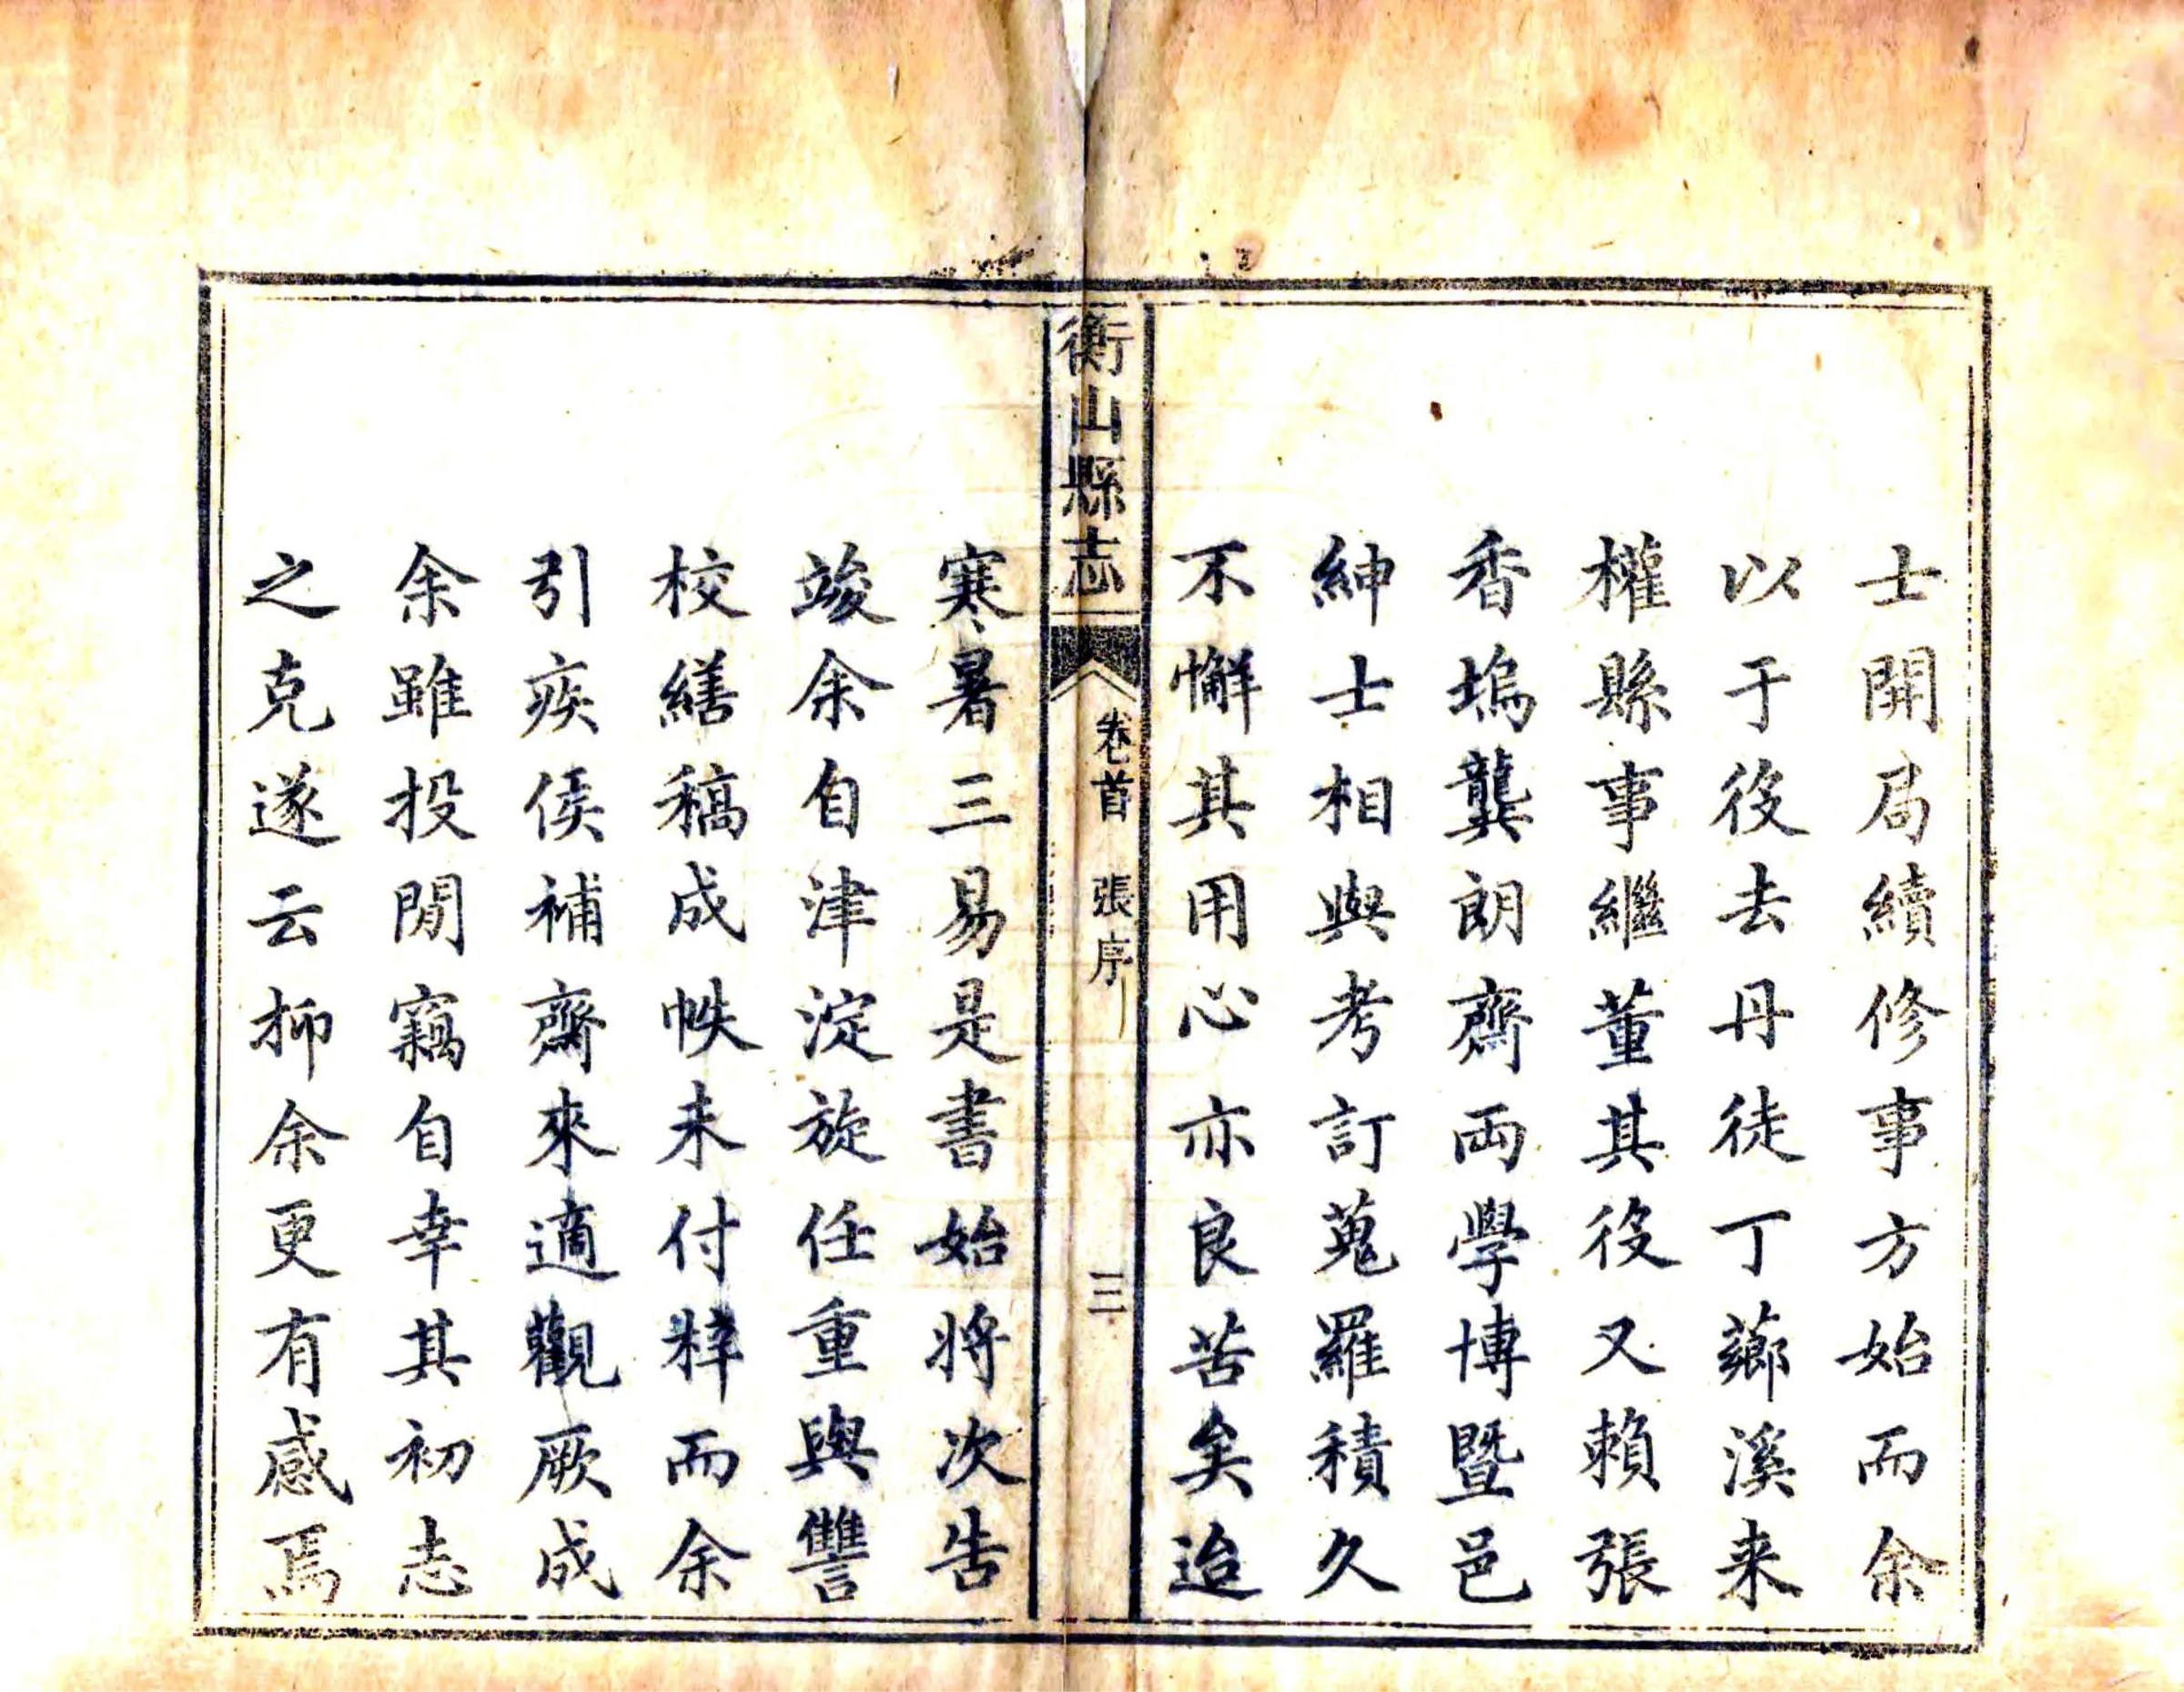 士開局續修事方始而余
以于役去丹徒丁薌溪来
權縣事繼董其役又賴張
香塢龔朗齋両學博暨邑
紳士相與考訂蒐羅積久
不懈其用心亦良苦矣迨
衡山縣志
卷首 張序
三
寒暑三易是書始將次告
竣余自津淀旋任重與讐
校繕稿成帙未付梓而余
引疾侯補齋來適觀厥成
余雖投閒竊自幸其初志
之克遂云抑余更有感焉